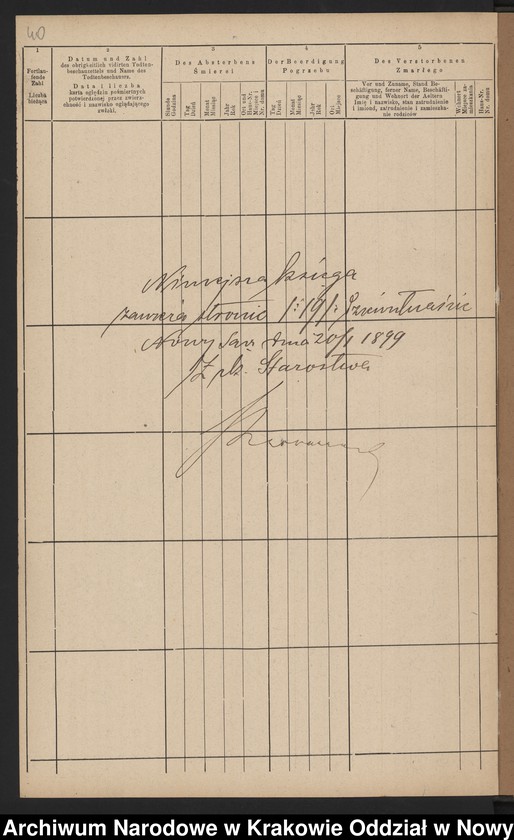 40
1
2
3
4
5
Fortlaufende Zahl
Liczba bieżąca
Datum und Zahl
des obrigkeitlich vidirten Todten-
beschauzettels und Name des
Todtenbeschauers.
Data i liczba
karty oględzin pośmiertnych
potwierdzonej przez zwierz-
chność i nazwisko oglądającego
zwłoki.
Des Absterbens
Śmierci
Stunde
Godzina
Tag
Dzień
Monat
Miesiąc
Jahr
Rok
Ort und Haus-Nr.
Miejsce i Nr. domu
Der Beerdigung
Pogrzebu
Tag
Dzień
Monat
Miesiąc
Jahr
Rok
Ort
Miejsce
Des Verstorbenen
Zmarłego
Vor und Zuname, Stand Be-
schäftigung, ferner Name, Beschäfti-
gung und Wohnort der Aeltern
Imię i nazwisko, stan zatrudnienie
i imiona, zatrudnienie i zamieszka-
nie rodziców
Wohnort
Miejsce zamieszkania
Haus-Nr.
Nr. domu
Niniejsza księga
zawiera stronic
Nowy Sącz dnia 20/1 1899
Z pk. Starostwa
Archiwum Narodowe w Krakowie Oddział w Nowy